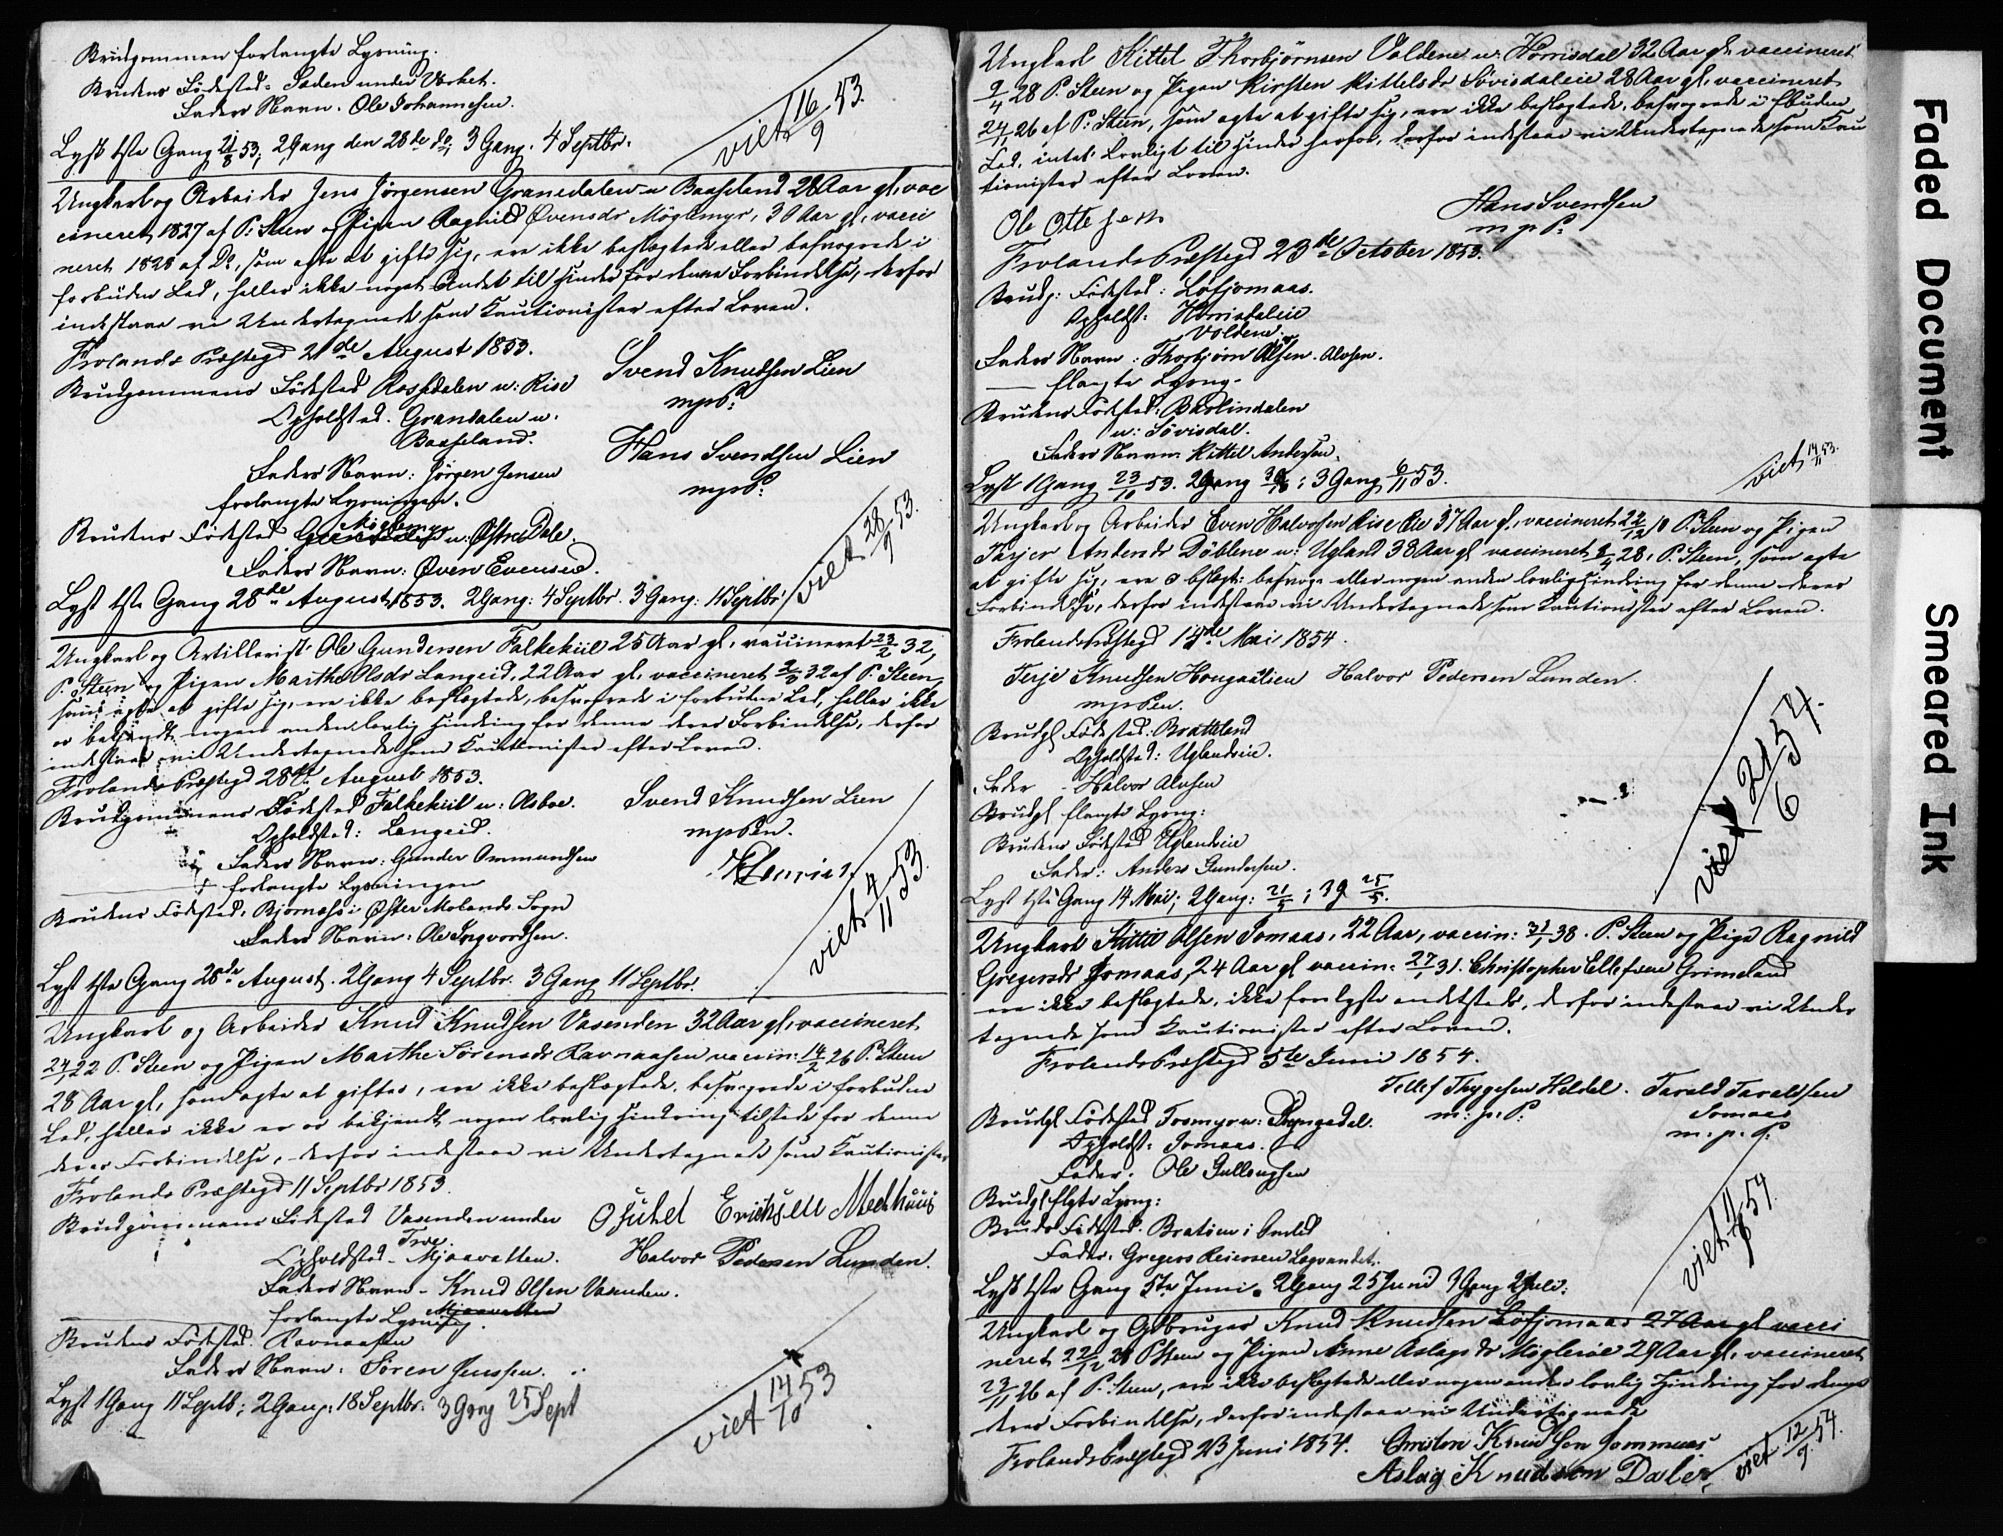 Brudgommen forlangte Lysning.
Brudens Fødested: Saden under Værket.
Faders Navn. Ole Johannesen.
Lyst 1ste Gang 21/8 53; 2 Gang den 28de do; 3 Gang. 4 Septbr.
viet 16/9 53.
Ungkarl og Arbeider Jens Jørgensen Gransdalen u Baaseland 28 Aar gl, vac
cineret 1827 af P: Steen og Pigen Ragnild Øvensdr Møglemyr, 30 Aar gl, vacci
neret 1828 af Do, som agte at gifte sig, ere ikke beslægtede eller besvogrede i
forbuden Led, heller ikke noget Andet til Hinder for denne Forbindelse, derfor
indestaae vi Undertegnede som Kautionister efter Loven.
Frolands Præstegd 21de August 1853.
Svend Knudsen Lien
mpP:
Brudgommens Fødested Rossedalen u: Rise
Opholdsted. Grandalen u.
Baaseland.
Hans Svendsen Lien
mpP:
Faders Navn: Jørgen Jensen
forlangte Lysningen.
Brudens Fødested Møglemyr u: Østre Dale.
Faders Navn: Øven Evensen.
Lyst 1ste Gang 28de August 1853. 2 Gang: 4 Septbr. 3 Gang: 11 Septbr.
viet 28/9 53.
Ungkarl og Artillerist Ole Gundersen Falkekiil 25 Aar gl, vaccineret 23/2 32,
P. Steen og Pigen Marthe Olsdr Langeid, 22 Aar gl, vaccineret 2/3 32 af P. Steen,
som agte at gifte sig, ere ikke beslægtede, besvogrede i forbuden Led, heller ikke
os bekjendt nogen anden lovlig Hindring for denne deres Forbindelse, derfor
indestaae vi Undertegnede som Kautionister efter Loven.
Frolands Præstegd 28de August 1853.
Brudgommens Fødested Falkekiil u: Olsboe.
Svend Knudsen Lien
mpPen.
Opholdsted: Langeid.
Faders Navn: Gunder Ommundsen
forlangte Lysningen
Brudens Fødested, Bjornaas i Øster Molands Sogn
Faders Navn: Ole Ingvordsen.
viet 4/11 53.
Lyst 1ste Gang 28de August. 2 Gang 4 Septbr. 3 Gang 11 Septbr.
Ungkarl og Arbeider Knud Knudsen Vasenden 32 Aar gl, vaccineret
24/1 22 P. Steen og Pigen Marthe Sørensdr Ravnaasen vaccin: 14/2 26 P. Steen
28 Aar gl, som agte at giftes, ere ikke beslægtede, besvogrede i forbuden
Led, heller ikke er os bekjendt nogen lovlig Hindring tilstede for denne
deres Forbindelse, derfor indestaae vi Undertegnede som Kautionister
Frolands Præstegd 11 Septbr 1853.
Brudgommens Fødested Vasenden under
Osuhel Ericksen Medhuus
Opholdsted - Mjaavatten.
Halvor Pedersen Lunden.
Faders Navn - Knud Olsen Vasenden.
forlangte Lysning.
Brudens Fødested. Ravnaasen
Faders Navn: Søren Jenssen.
Lyst 1 Gang 11 Septb; 2 Gang: 18 Septbr. 3 Gang 25 Sept
viet 14/10 53
Ungkarl Kittel Thorbjørnsen Voldene u: Hørrisdal 32 Aar gl. vaccineret
9/4 28 P. Steen og Pigen Kirsten Kittelsdr Søvisdaleie 28 Aar gl, vaccineret
24/1 26 af P: Steen, som agte at gifte sig, ere ikke beslægtede, besvogrede i fbuden
Led, intet Lovligt til Hinder herfor, derfor indestaae vi Undertegnede som Kau
tionister efter Loven.
Hans Svendsen
mpP.
Ole Ottesen
Frolands Præstegd 23de October 1853.
Brudg: Fødested: Løfjomaas.
Opholdst: Hørrisdaleie
Voldene.
Faders Navn: Thorbjørn Olsen.
flangte Lysng.
Brudens Fødested: Barlindalen
u: Søvisdal.
Faders Navn Kittel Andersen.
Lyst 1 Gang 23/10 53. 2 Gang 30/10; 3 Gang 6/11 53.
viet 14/11 53.
Ungkarl og Arbeider Even Halvorsen Riseeie 37 Aar gl, vaccineret 22/12 P. Steen og Pigen
Terjer Andersdr Døblene u: Ugland 38 Aar gl vaccineret 9/4 28, P. Steen, som agte
at gifte sig, ere beslægt: besvogr eller nogen anden lovlig Hindring for denne deres
Forbindelse, derfor indestaae vi Undertegnede som Kautionister efter Loven.
Frolands Præstegd 14de Mai 1854.
Terje Knudsen Hougaalien Halvor Pedersen Lunden.
mpPen.
Brudgs Fødested: Bratteland
Opholdsted: Uglandeie.
Fader - Halvor Alvsen
Brudgs flangte Lysng:
Brudens Fødested Uglandeie
Fader: Anders Gundersen.
viet 21/6 54.
Lyst 1ste Gang 14 Mai; 2 Gang: 21/5; 3 G 25/5.
Ungkarl Kittil Olsen Jomaas, 22 Aar, vaccin: 31/1 38. P. Steen og Pige Ragnild
Gregersdr Jomaas, 24 Aar gl vaccin: 27/1 31. Christopher Ellefsen Grimeland
ere ikke beslægtede, ikke forlyste andetsteds, derfor indestaae vi Under
tegnede som Kautionister efter Loven.
Frolands Præstegd 5te Juni 1854.
Tellef Thygesen Heldal. Tarald Taraldsen
m: p. P: Jomaas
m. p. P:
Brudgs Fødested Tosmyr u: Dyngedal.
Opholdst: Jomaas.
Fader. Ole Gulleugsen
Brudgs flgte Lysng:
Bruds Fødested. Bratsien i Omled
Fader, Gregers Reiersen Løgvandet.
Lyst 1ste Gang 5te Juni. 2 Gang 25 Juni 3 Gang 2 Juli.
viet 54.
Ungkarl og Gbruger Knud Knudsen Løfjomaas 27 Aar gl vacci
neret 22/12 28 P. Steen og Pigen Anne Aslagsdr Møglerøe 29 Aar gl, vaccineret
23/11 26 af P. Steen, ere ikke beslægtede eller nogen anden lovlig Hindring for denne
deres Forbindelse, derfor indestaae vi Undertegnede
Frolands Præstegd 23 Juni 1854. Christen Knudsen Jommaas
Aslag Knudsen Dalen,
viet 12/9 54.
Faded Document
Smeared Ink